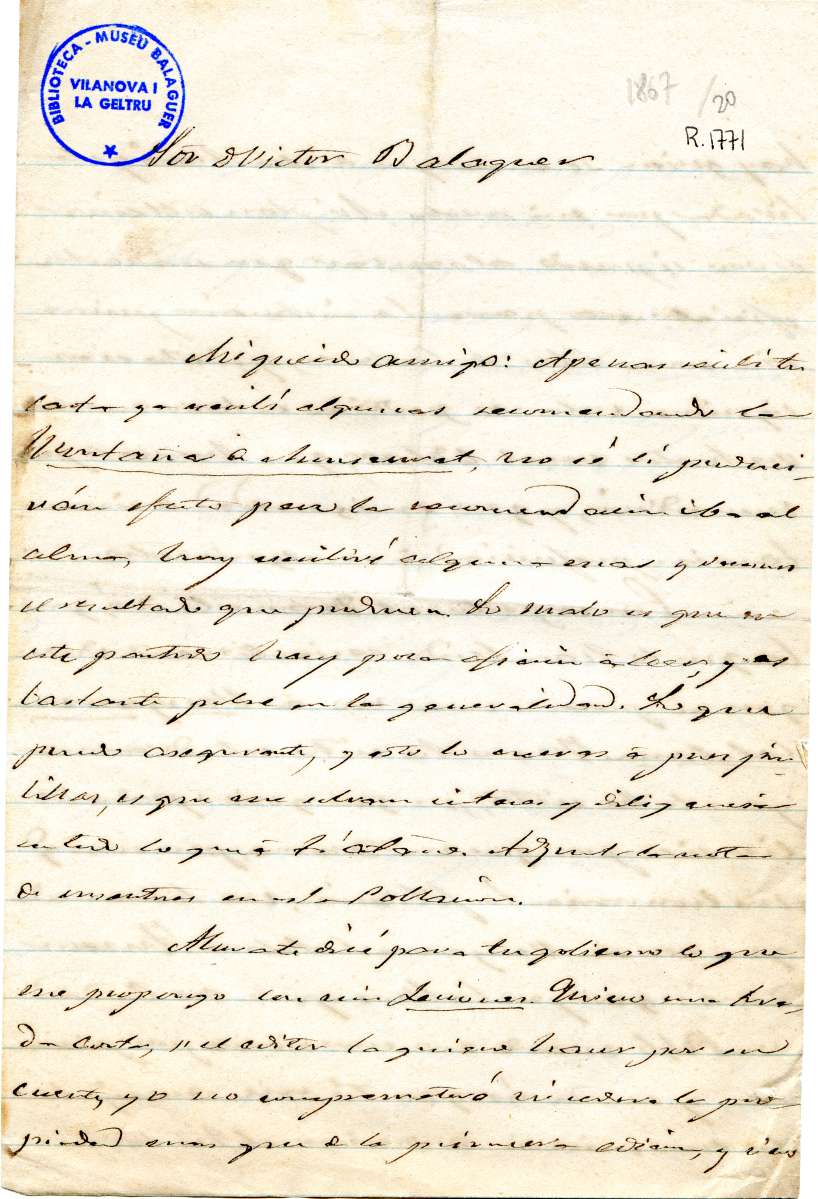 BIBLIOTECA - MUSEU BALAGUER
VILANOVA I
LA GELTRU
1867 /20
R.1771
Sor D Victor Balaguer
Mi querido amigo: Apenas recibí tu
carta ya escribí algunas recomendando la
Montaña de Monserrat, no sé si produci-
rán efecto pero la recomendación iba al
alma, hoy escribiré algunas mas y veremos
el resultado que producen. Lo malo es que en
este partido hay poca afición à leer y es
bastante pobre en la generalidad. Lo que
puedo asegurarte, y esto lo creeras à puño
es que
en todo lo que à ti atañe. Adjunta la nota
de en esta Poblacion.
Ahora te diré para tu gobierno lo que
me propongo con mis Lecciones. Quiero una
da corta, si el editor la quiere hacer por su
cuenta, yo no comprometeré ni cedere la pro-
piedad mas que de la primera edicion, y si no